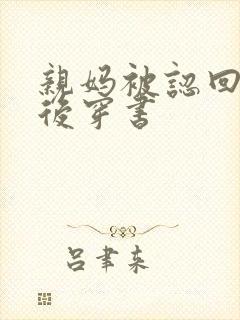 親妈被認回
後穿書
呂聿来